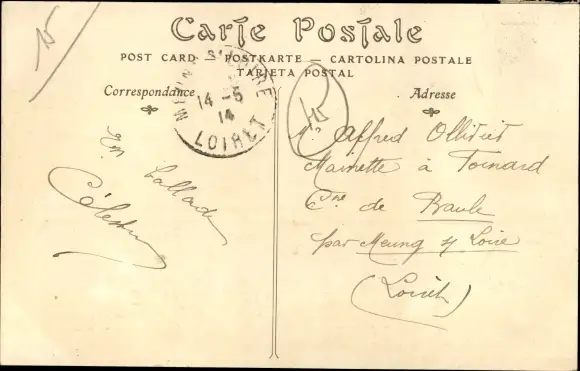 Carte Postale
POST CARD – POSTKARTE – CARTOLINA POSTALE
TARJETA POSTAL
Correspondance
14 - 5
14
LOIRET
En ballade
Célestin
Adresse
Alfred Ollivier
à Toinard
Cne de Baule
par Meung s/ Loire
(Loiret)
15